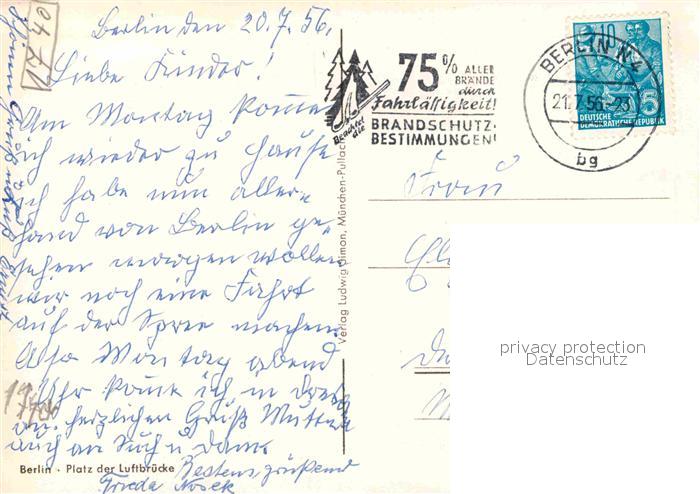 Berlin den 20.7.56.
Liebe Kinder!
Am Montag komme
ich wieder zu Hause
ich habe nun aller-
hand von Berlin ge-
sehen morgen wollen
wir noch eine Fahrt
auf der Spree machen.
Also Montag abend
Uhr komme ich in
an. herzlichen Gruß Mutter
auch an Such u
Bestens grüßend
Frieda Nosek
Berlin · Platz der Luftbrücke
Verlag Ludwig Simon, München-Pullach
75% ALLER
BRÄNDE
durch
Fahrlässigkeit!
Beachtet
die
BRANDSCHUTZ-
BESTIMMUNGEN!
BERLIN N 4
21.7.56.-23
bg
10
5
DEUTSCHE
DEMOKRATISCHE REPUBLIK
Frau
privacy protection
Datenschutz